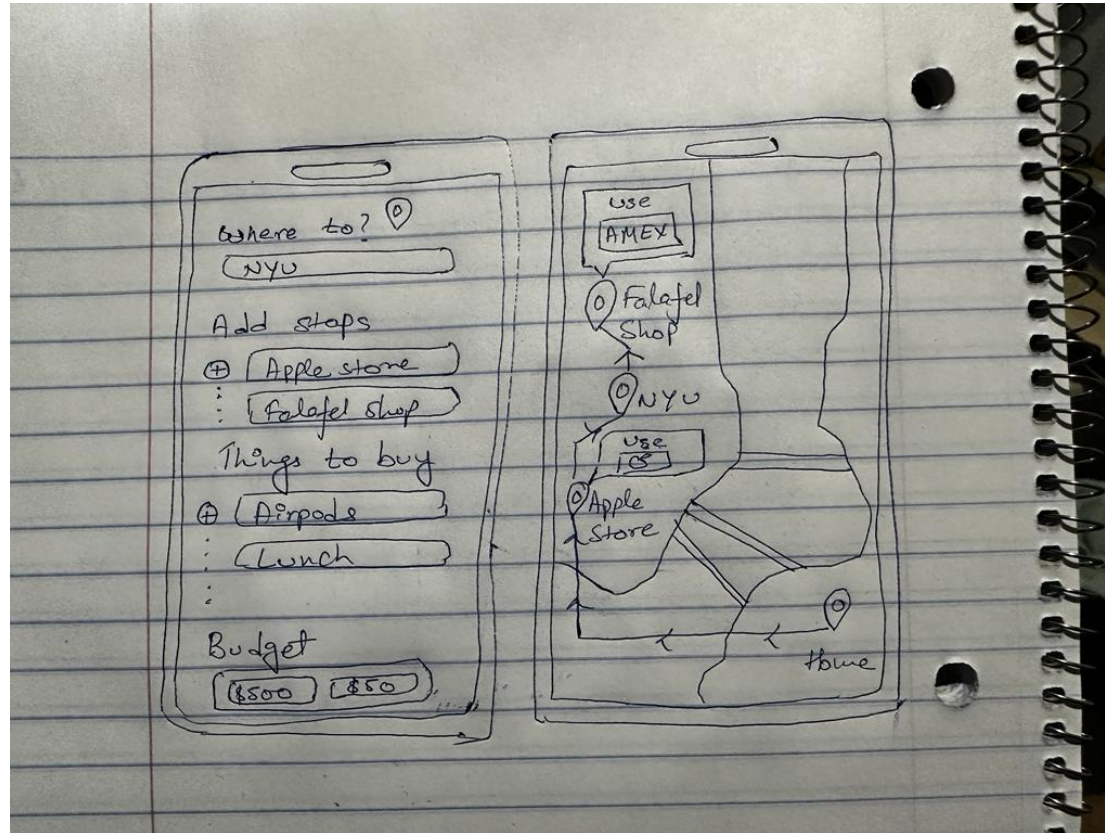 Where to?
NYU
Add stops
Apple store
Falafel Shop
Things to buy
Airpods
Lunch
Budget
$500 $50
use
AMEX
Falafel
Shop
NYU
use
Apple
Store
Home